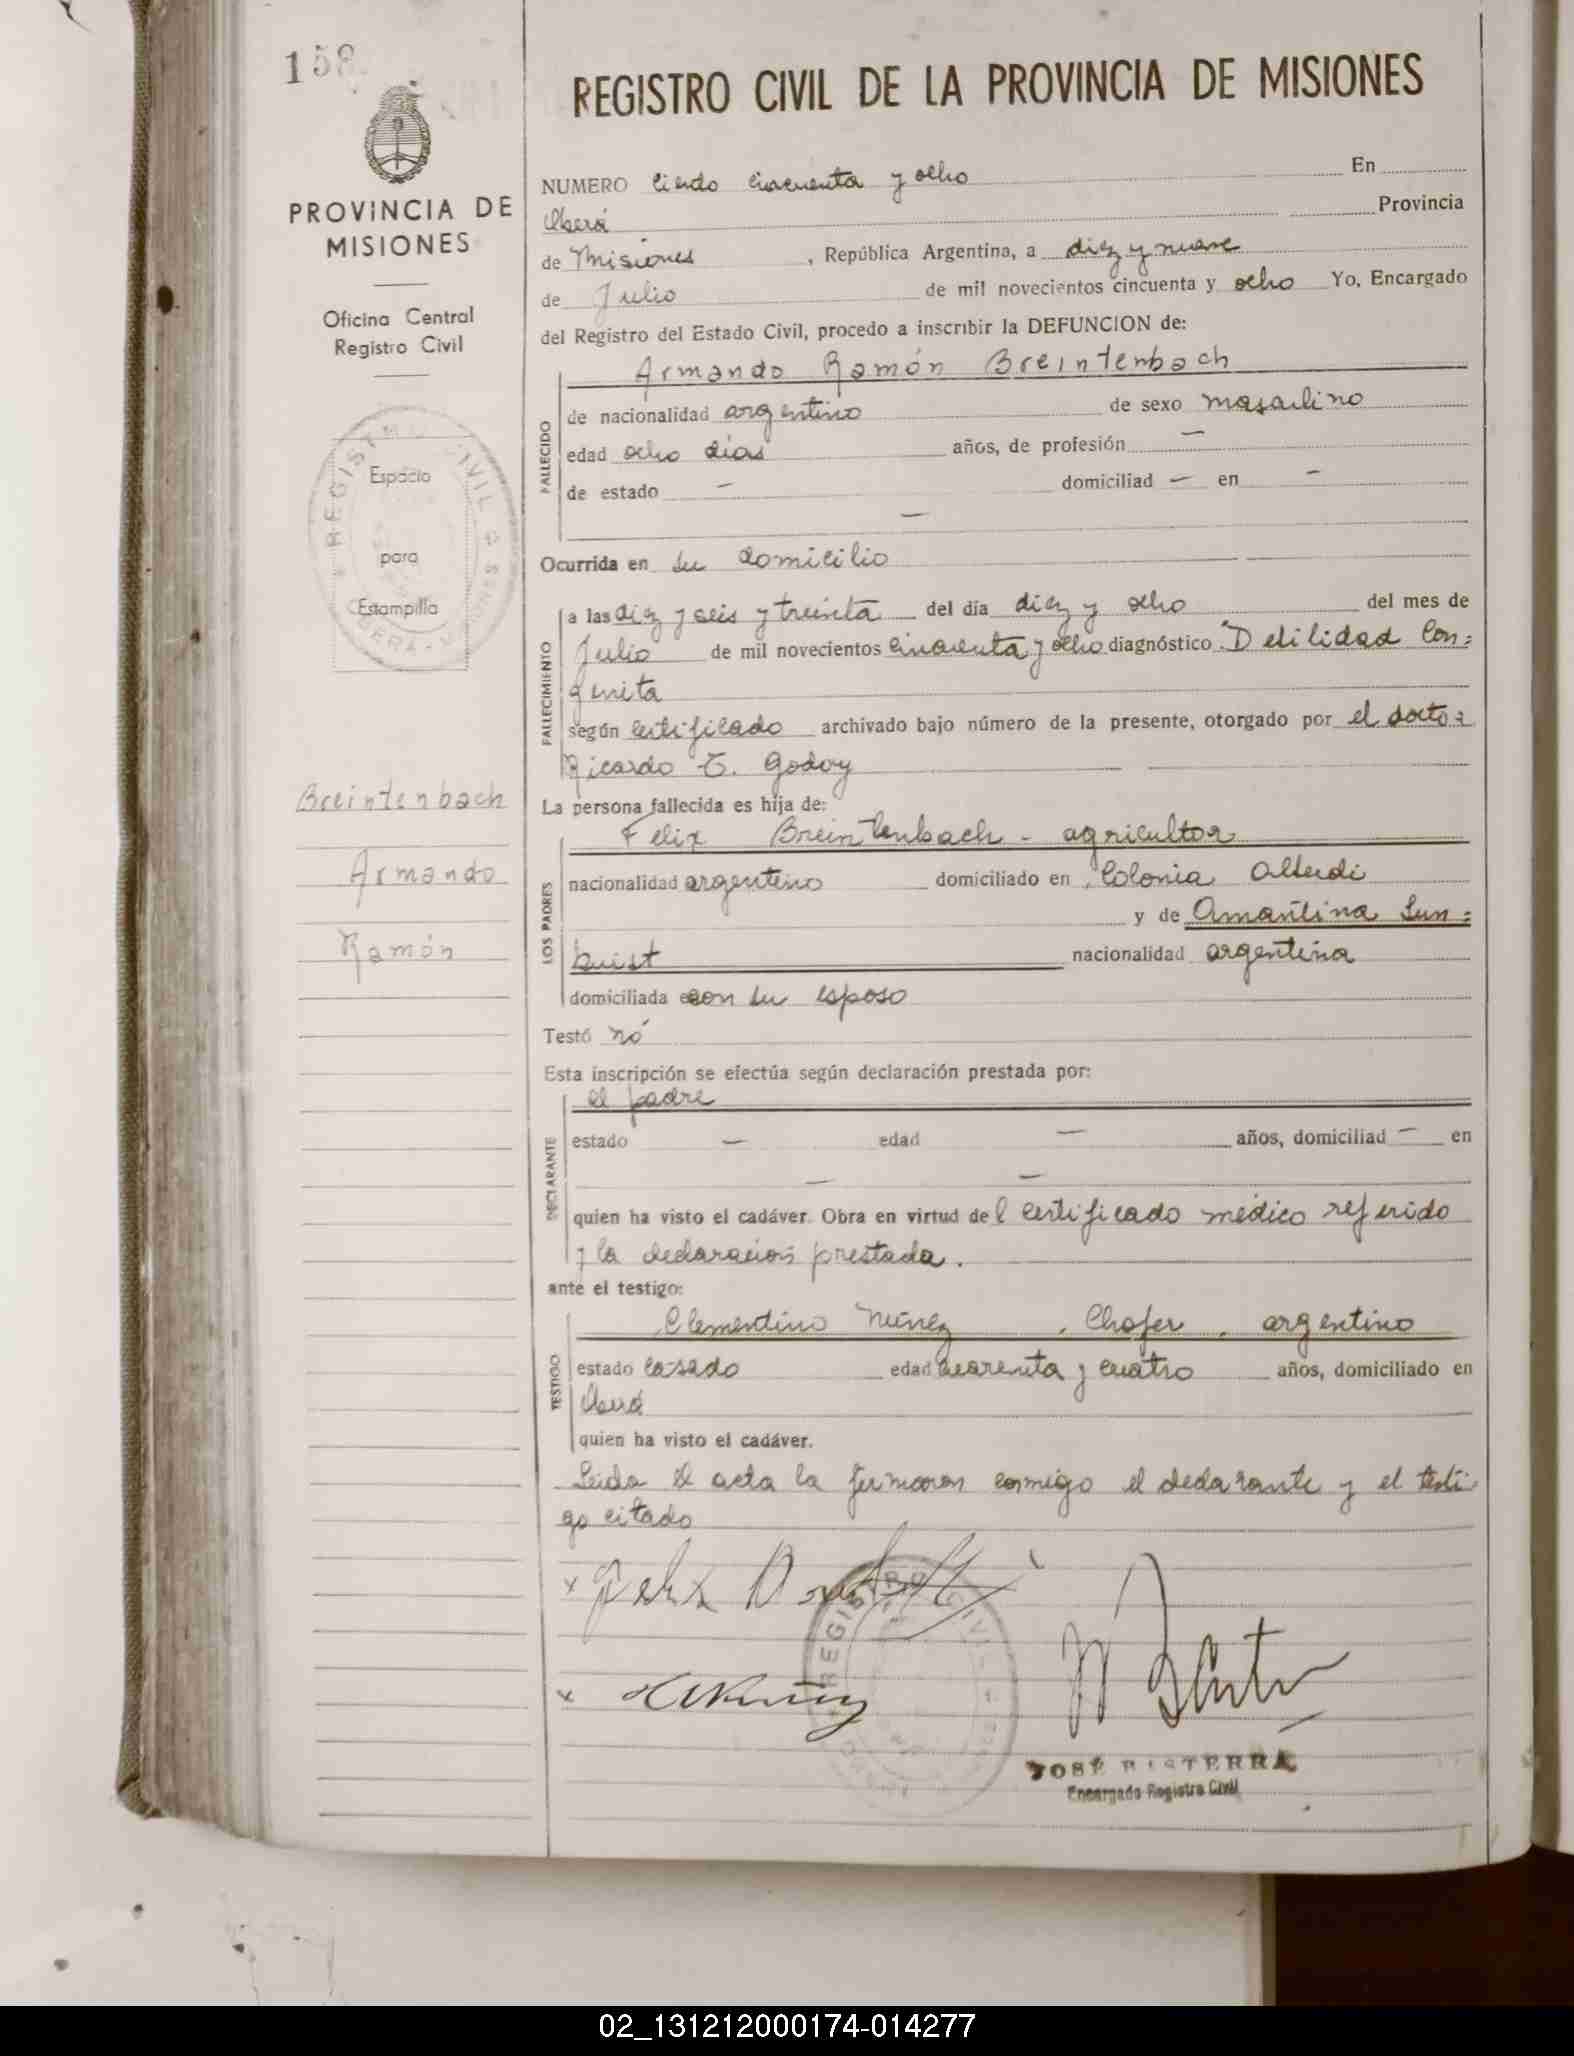 158
REGISTRO CIVIL DE LA PROVINCIA DE MISIONES
PROVINCIA DE
MISIONES
Oficina Central
Registro Civil
REGISTRO CIVIL
Espacio
para
Estampilla
Breintenbach
Armando
Ramón
NUMERO Ciento cincuenta y ocho En
Oberá Provincia
de Misiones, República Argentina, a diez y nueve
de Julio de mil novecientos cincuenta y ocho Yo, Encargado
del Registro del Estado Civil, procedo a inscribir la DEFUNCION de:
Armando Ramón Breintenbach
FALLECIDO
de nacionalidad argentino de sexo masculino
edad ocho dias años, de profesión —
de estado — domiciliad — en —
—
Ocurrida en su domicilio
FALLECIMIENTO
a las diez y seis y treinta del día diez y ocho del mes de
Julio de mil novecientos cincuenta y ocho diagnóstico Debilidad Con=
genita
según certificado archivado bajo número de la presente, otorgado por el doctor
Ricardo T. Godoy
La persona fallecida es hija de:
LOS PADRES
Felix Breintenbach - agricultor
nacionalidad argentino domiciliado en Colonia Alberdi
y de Amantina Sun=
quist nacionalidad argentina
domiciliada con su esposo
Testó nó
Esta inscripción se efectúa según declaración prestada por:
DECLARANTE
el padre
estado — edad — años, domiciliad — en
— —
quien ha visto el cadáver. Obra en virtud del certificado médico referido
y la declaración prestada.
ante el testigo:
TESTIGO
Clementino Núñez, Chofer, argentino
estado casado edad cuarenta y cuatro años, domiciliado en
Oberá
quien ha visto el cadáver.
Leida el acta la firmaron conmigo el declarante y el testi
go citado
x Felix
x
JOSÉ BISTERRA
Encargado Registro Civil
02_131212000174-014277